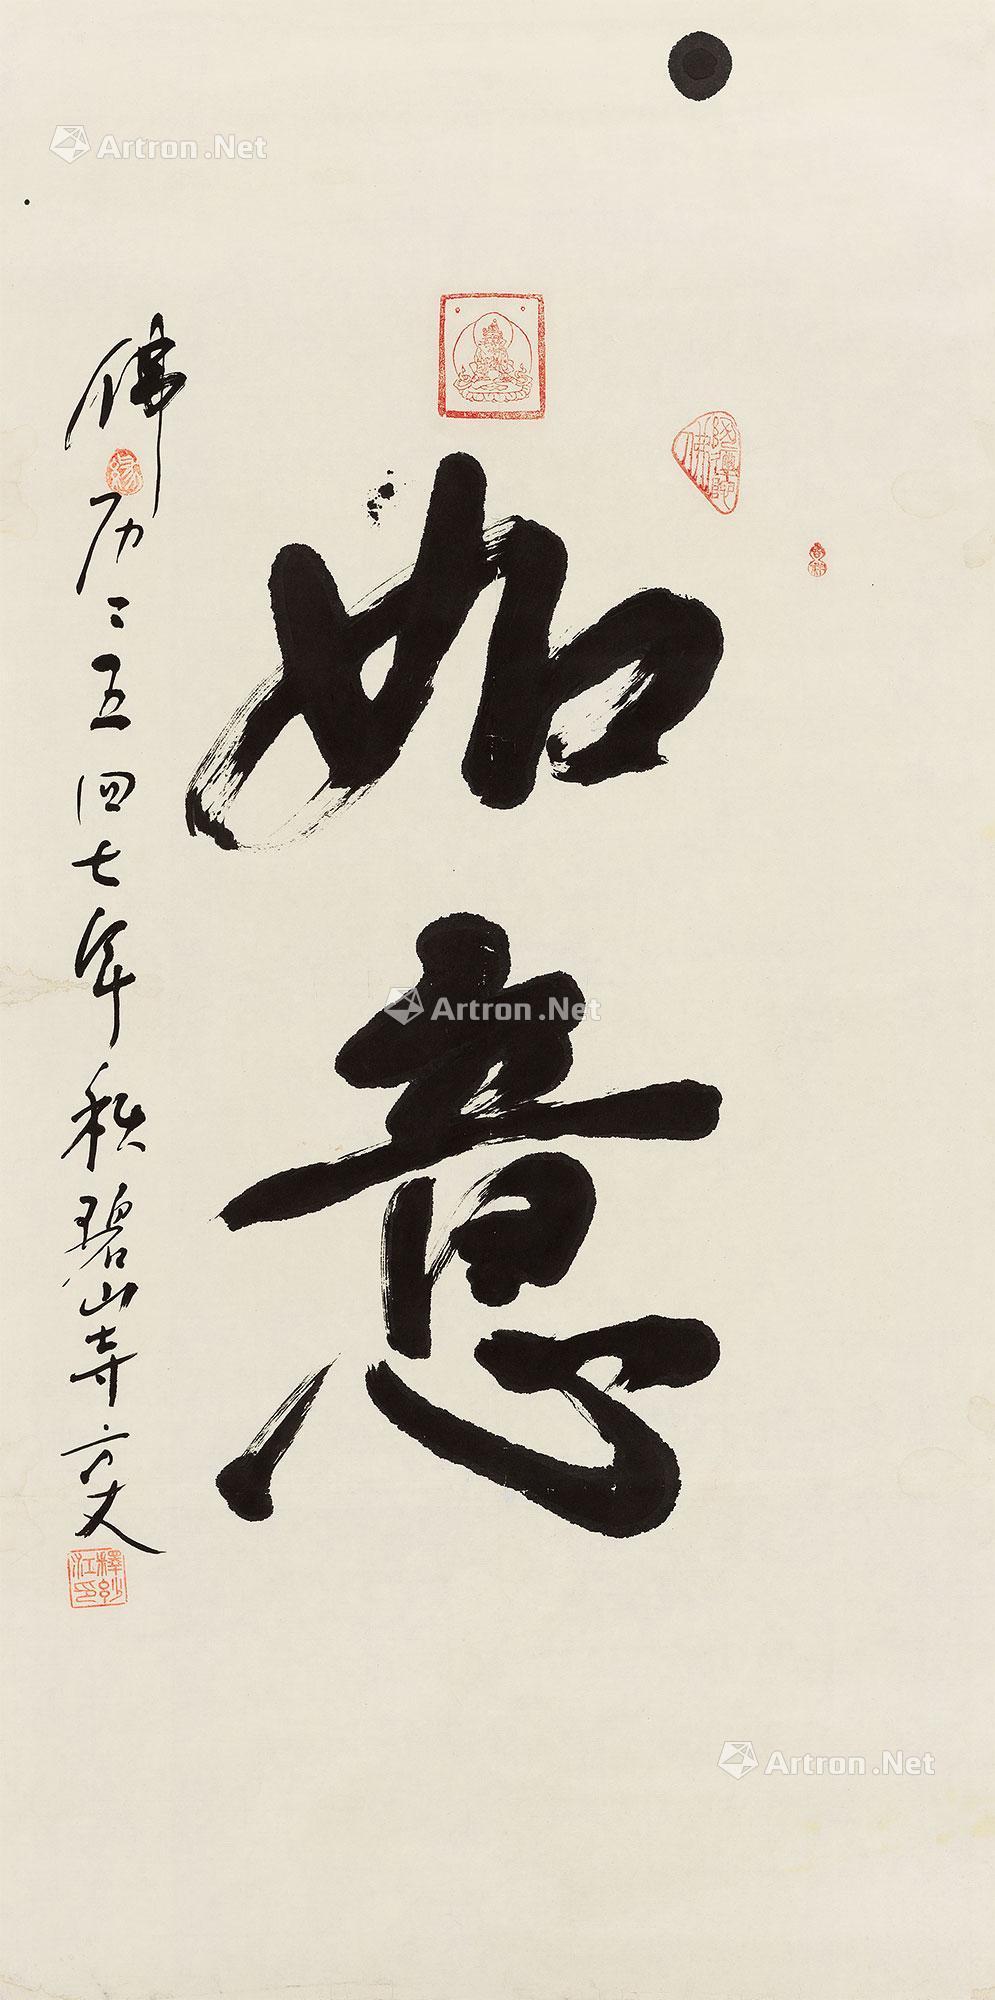 如意
佛历二五四七年秋碧山寺方丈
釋妙江印
Artron.Net
Artron.Net
Artron.Net